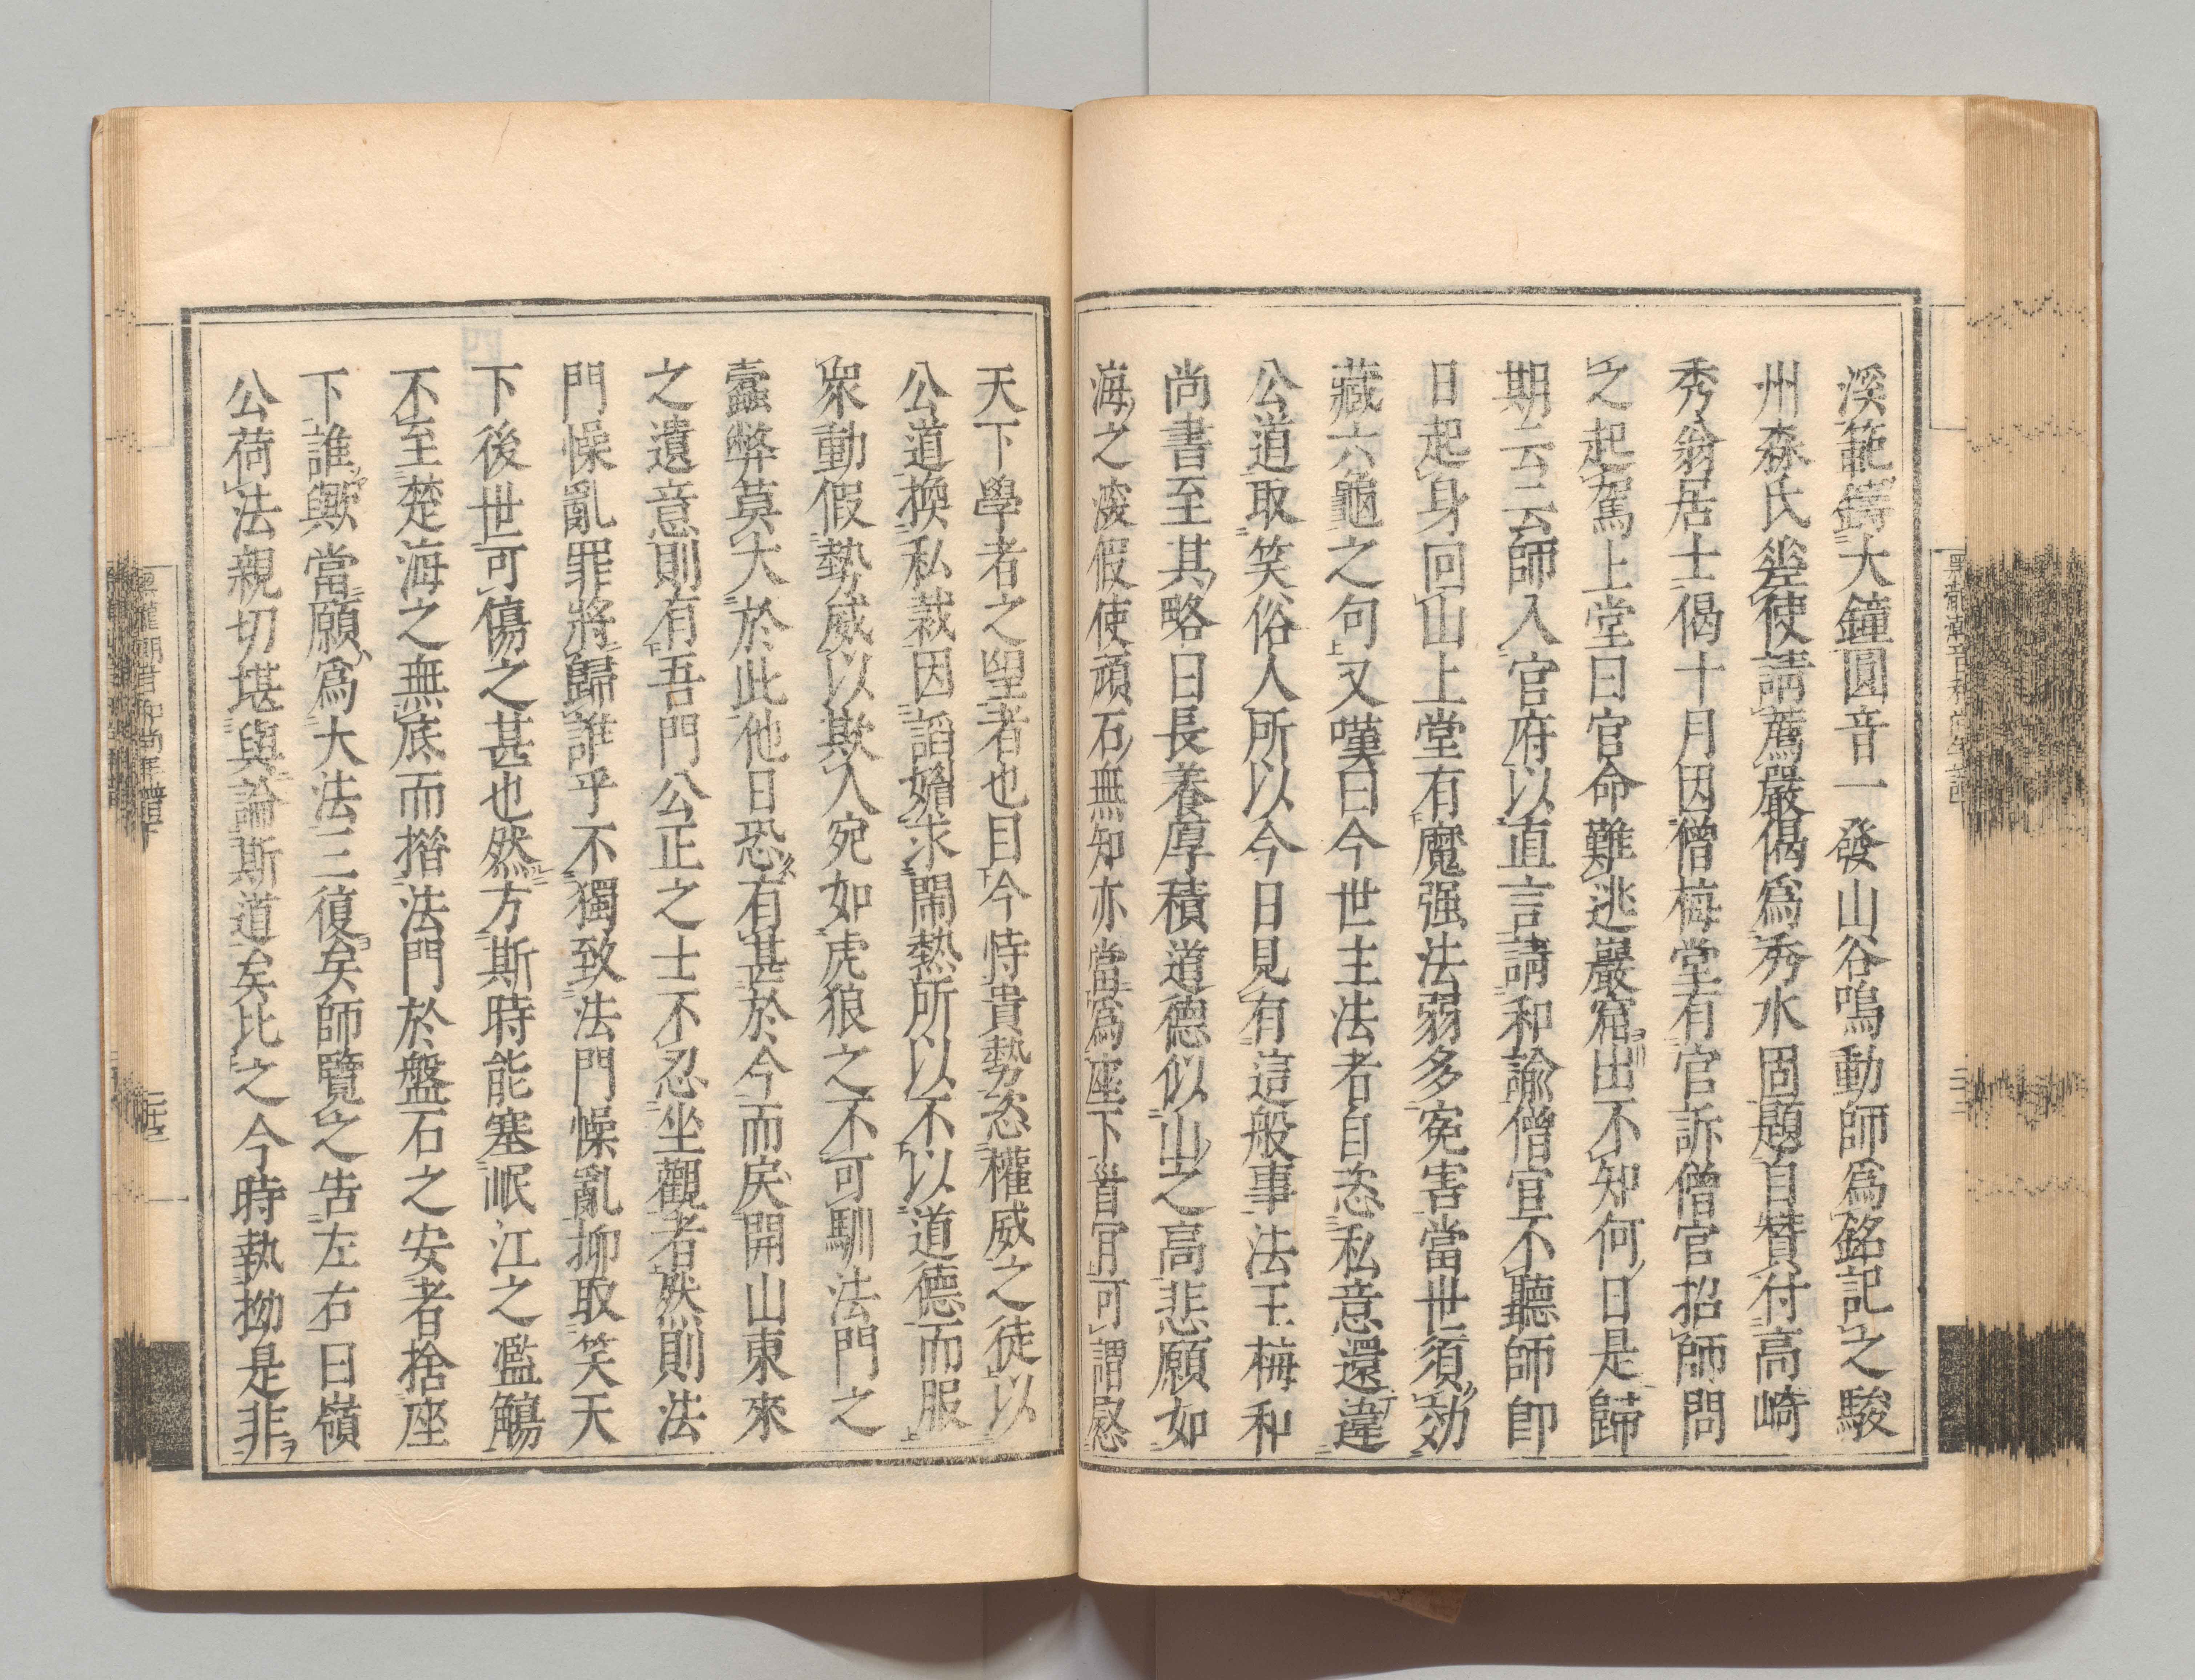 溪範鑄大鐘圓音一發山谷鳴動師爲銘記之駿
州森氏差使請薦嚴偈爲秀水固題自贊付高崎
秀翁居士偈十月因僧梅堂有官訴僧官招師問
之起駕上堂曰官命難逃巖窟出不知何日是歸
期云云師入官府以直言請和諭僧官不聽師卽
日起身回山上堂有魔强法弱多寃害當世須効
藏六龜之句又嘆曰今世主法者自恣私意還違
公道取笑俗人所以今日見有這般事法王梅和
尚書至其略曰長養厚積道德似山之高悲願如
海之深假使頑石無知亦當爲座下首肎可謂感
天下學者之望者也目今恃貴勢恣權威之徒以
公道換私裁因謟媚求鬧熱所以不以道德而服
衆動假勢威以欺人宛如虎狼之不可馴法門之
蠹弊莫大於此他日恐有甚於今而戾開山東來
之遺意則有吾門公正之士不忍坐觀者然則法
門懆亂罪將歸誰乎不獨致法門懆亂抑取笑天
下後世可傷之甚也然方斯時能塞岷江之濫觴
不至楚海之無底而揩法門於盤石之安者捨座
下誰歟當願爲大法三復矣師覽之告左右曰嶺
公荷法親切堪與論斯道矣比之今時執拗是非